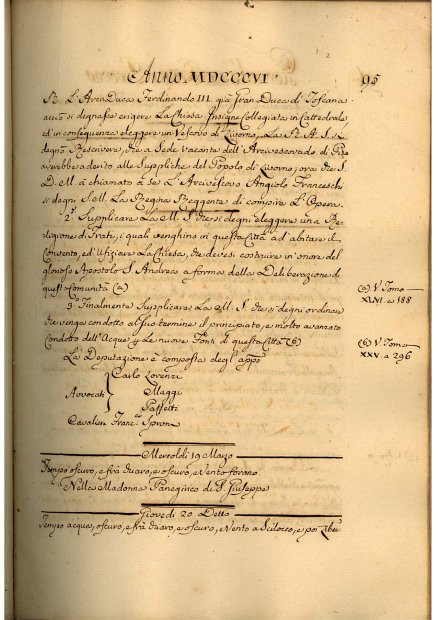 Anno MDCCCVI.
95
R. L'ArciDuca Ferdinando III. già Gran Duca di Toscana
acciò si degnasse erigere La Chiesa Insigne Collegiata in Cattedrale
ed in conseguenza eleggere un Vescovo di Livorno, La R. A. S. si
degnò Rescrivere, che a Sede vacante dell'Arcivescovado di Pisa
averebbe aderito alle Suppliche del Popolo di Livorno, ora che S.
D. M. à chiamato a Se L'Arcivescovo Angiolo Franceschi
si degni S. M. La Regina Reggente di compire L'Opera.
2.° Supplicare La M. S. che si degni eleggere una Re-
ligione di Frati, i quali venghino in questa Città ad abitare il
Convento, ed Ufiziare La Chiesa, che devesi costruire in onore del
glorioso Apostolo S. Andrea a forma della Deliberazione di
questa Comunità (a)
(a) V. Tomo
XLVI. a 188
3.° Finalmente Supplicare La M. S. che si degni ordinare
che venga condotto al suo termine il principiato, e molto avanzato
Condotto dell'Acque p le nuove Fonti di questa Città (b)
(b) V. Tomo
XXV. a 296
La Deputazione è composta degl'app.
Carlo Lorenzi
Avvocati Maggi
Paffetti
Cavalier Franc. Sproni
Mercoldì 19 Marzo
Tempo oscuro, e frà chiaro, e oscuro, e Vento forano
Nella Madonna Panegirico di S. Giuseppe
Giovedì 20 Detto
Tempo acquoso, oscuro, e frà chiaro, e oscuro, e Vento a Scilocco, e poi Libec